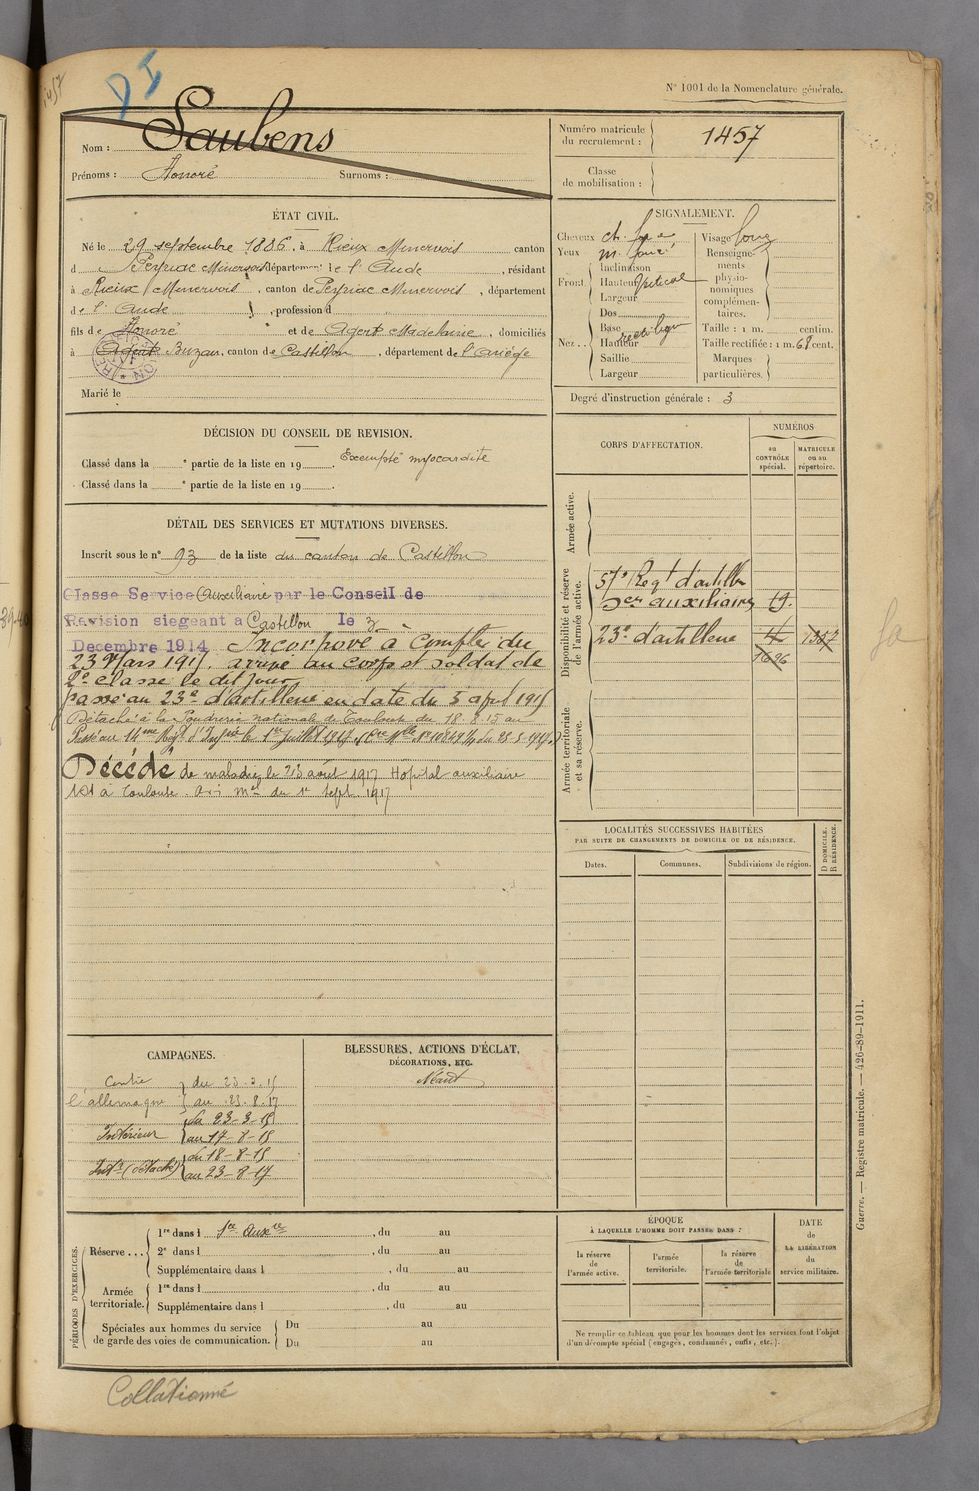 1457
D I
N° 1001 de la Nomenclature générale.
Nom : Saubens
Prénoms : Honoré Surnoms :
Numéro matricule du recrutement : 1457
Classe de mobilisation :
ÉTAT CIVIL.
Né le 29 septembre 1886, à Rieux Minervois canton
d Peyriac Minervois département de l'Aude, résidant
à Rieux Minervois, canton de Peyriac Minervois, département
de l'Aude, profession d
fils de Honoré et de Agert Madeleine, domiciliés
à Agert Buzan, canton de Castillon, département de l'Ariège
Marié le
SIGNALEMENT.
Cheveux ch.
Yeux m.
Front. Inclinaison
Hauteur Vertical
Largeur
Nez. Dos
Base rectiligne
Hauteur
Saillie
Largeur
Visage long
Renseignements physionomiques complémentaires.
Taille : 1 m. centim.
Taille rectifiée : 1 m. 68 cent.
Marques particulières.
Degré d'instruction générale : 3
DÉCISION DU CONSEIL DE REVISION.
Classé dans la e partie de la liste en 19 . Exempté myocardite
Classé dans la e partie de la liste en 19 .
DÉTAIL DES SERVICES ET MUTATIONS DIVERSES.
Inscrit sous le n° 93 de la liste du canton de Castillon
Classe Service Auxiliaire par le Conseil de
Revision siegeant a Castillon le 3
Decembre 1914 Incorporé à compter du
23 Mars 1915. arrivé au corps et soldat de
2e classe le dit jour
passé au 23e d'artillerie en date du 5 avril 1915
Détaché à la Poudrerie nationale de Toulouse du 18.8.15 au
Passé au 14me Regt d'Infrie le 1er Juillet 1917
Décédé de maladie le 23 août 1917 Hopital auxiliaire
à Toulouse. du 1r Sept. 1917
CORPS D'AFFECTATION.
NUMÉROS
au CONTRÔLE spécial.
MATRICULE ou au répertoire.
Armée active.
Disponibilité et réserve de l'armée active.
57e Regt d'artillie
Scer auxiliaires 19.
23e d'artillerie
Armée territoriale et sa réserve.
LOCALITÉS SUCCESSIVES HABITÉES
PAR SUITE DE CHANGEMENTS DE DOMICILE OU DE RÉSIDENCE.
Dates. Communes. Subdivisions de région.
D DOMICILE.
R RÉSIDENCE.
CAMPAGNES.
Contre du 23.3.15
l'allemagne au 23.8.17
Intérieur du 23-3-15
au 17-8-15
Intr (détaché) du 18-8-15
au 23-8-17
BLESSURES, ACTIONS D'ÉCLAT,
DÉCORATIONS, ETC.
Néant
PÉRIODES D'EXERCICES.
Réserve... 1re dans l Sce Auxre, du au
2e dans l , du au
Supplémentaire dans l , du au
Armée territoriale. 1re dans l , du au
Supplémentaire dans l , du au
Spéciales aux hommes du service de garde des voies de communication. Du au
Du au
ÉPOQUE
À LAQUELLE L'HOMME DOIT PASSER DANS :
la réserve de l'armée active.
l'armée territoriale.
la réserve de l'armée territoriale
DATE de LA LIBÉRATION du service militaire.
Ne remplir ce tableau que pour les hommes dont les services font l'objet
d'un décompte spécial (engagés, condamnés, omis, etc.).
Guerre. — Registre matricule. — 426-89-1911.
Collationné